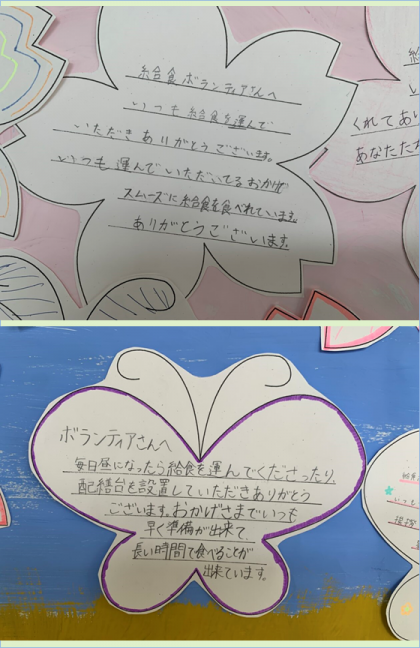 給食ボランティアさんへ
いつも給食を運んで
いただきありがとうございます。
いつも運んでいただいてるおかげで
スムーズに給食を食べれています。
ありがとうございます。
くれてあり
あなたたち
ボランティアさんへ
毎日昼になったら給食を運んでくださったり、
配繕台を設置していただきありがとう
ございます。おかげさまでいつも
早く準備が出来て、
長い時間で食べることが
出来ています。